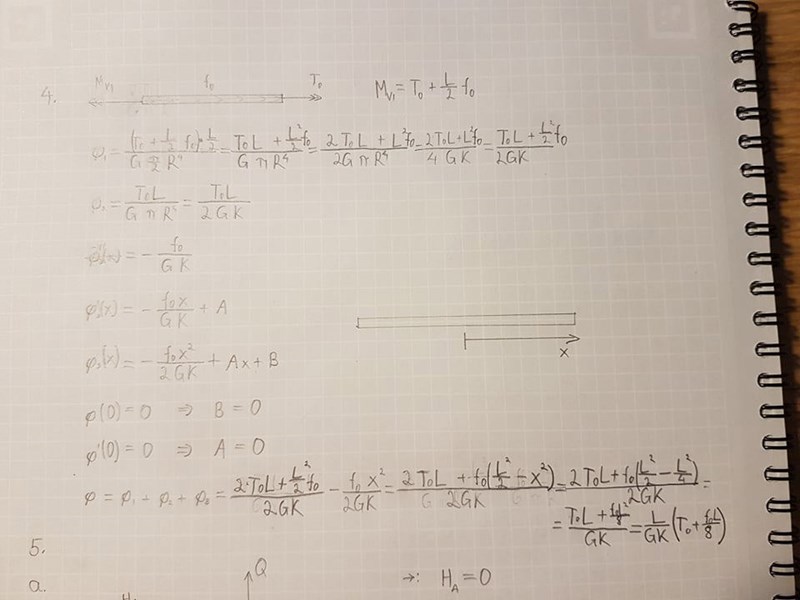 4. M_V1 f_0 T_0 M_V1 = T_0 + L/2 f_0
φ_1 = (T_0 + L/2 f_0)·L/2 / (G π/2 R^4) = (T_0L + L^2/2 f_0) / (G π R^4) = (2T_0L + L^2f_0) / (2GπR^4) = (2T_0L + L^2f_0) / (4GK) = (T_0L + L^2/2 f_0) / (2GK)
φ_2 = T_0L / (G π R^4) = T_0L / (2GK)
φ''(x) = - f_0 / (GK)
φ'(x) = - f_0x / (GK) + A
x
φ_3(x) = - f_0x^2 / (2GK) + Ax + B
φ(0) = 0 ⇒ B = 0
φ'(0) = 0 ⇒ A = 0
φ = φ_1 + φ_2 + φ_3 = (2·T_0L + L^2/2 f_0) / (2GK) - f_0x^2 / (2GK) = (2T_0L + f_0(L^2/2 - x^2)) / (2GK) = (2T_0L + f_0(L^2/2 - L^2/4)) / (2GK) =
= (T_0L + f_0L^2/8) / (GK) = L/(GK) (T_0 + f_0L/8)
5.
a. Q →: H_A = 0